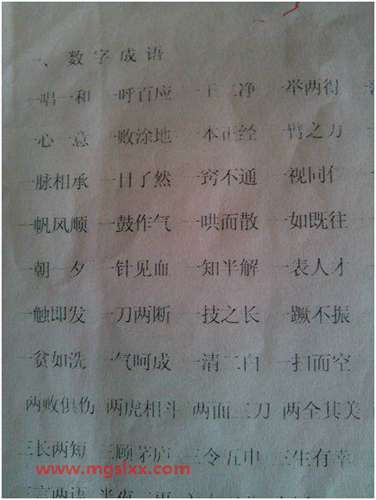 一、数字成语
一唱一和 一呼百应 一干二净 一举两得
一心一意 一败涂地 一本正经 一臂之力
一脉相承 一目了然 一窍不通 一视同仁
一帆风顺 一鼓作气 一哄而散 一如既往
一朝一夕 一针见血 一知半解 一表人才
一触即发 一刀两断 一技之长 一蹶不振
一贫如洗 一气呵成 一清二白 一扫而空
两败俱伤 两虎相斗 两面三刀 两全其美
三长两短 三顾茅庐 三令五申 三生有幸
www.mgslxx.com
三言两语